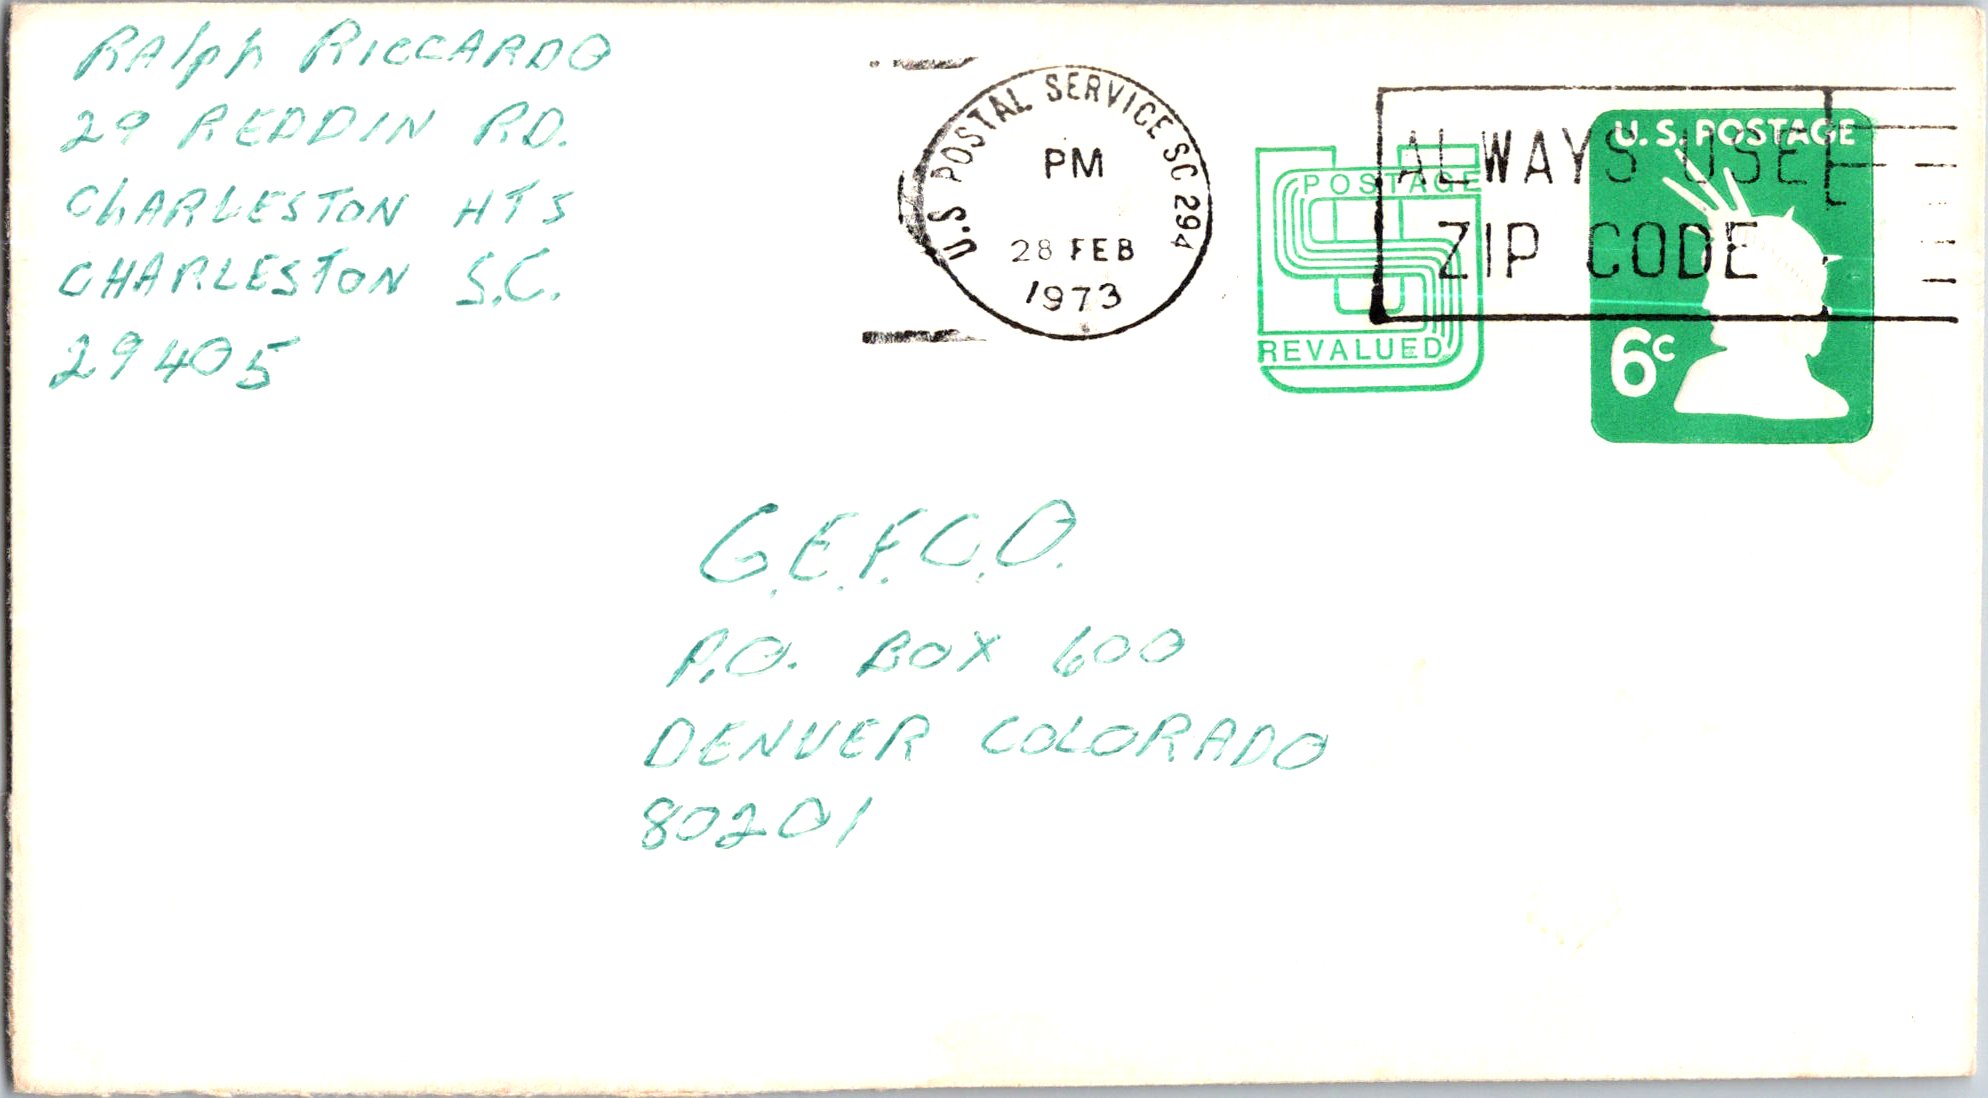 RAlph RICCARDO
29 REDDIN RD.
ChARLESTON HTS
CHARLESTON S.C.
29405
U.S. POSTAL SERVICE SC 294
PM
28 FEB
1973
POSTAGE
REVALUED
ALWAYS USE
ZIP CODE
U.S. POSTAGE
6c
G.E.F.C.O.
P.O. BOX 600
DENVER COLORADO
80201